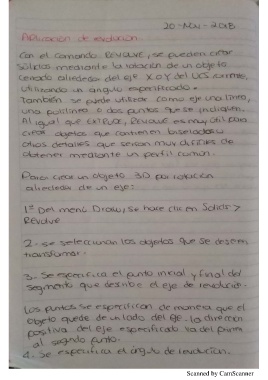 20 - Nov - 2018
Aplicación de revolución.
Con el comando REVOLVE, se pueden crear
sólidos mediante la rotación de un objeto
cerrado alrededor del eje X o Y del UCS corriente,
utilizando un ángulo especificado.
También se puede utilizar como eje una línea,
una polilínea o dos puntos que se indiquen.
Al igual que EXTRUDE, REVOLVE es muy útil para
crear objetos que contienen biselados u
otros detalles que serían muy difíciles de
obtener mediante un perfil común.
Para crear un objeto 3D por rotación
alrededor de un eje:
1º Del menú Draw, se hace clic en Solids >
Revolve
2.- se seleccionan los objetos que se deseen
transformar.
3.- Se especifica el punto inicial y final del
segmento que describe el eje de revolución.
Los puntos se especifican de manera que el
objeto quede de un lado del eje. La dirección
positiva del eje especificado va del primer
al segundo punto.
4.- Se especifica el ángulo de revolución.
Scanned by CamScanner